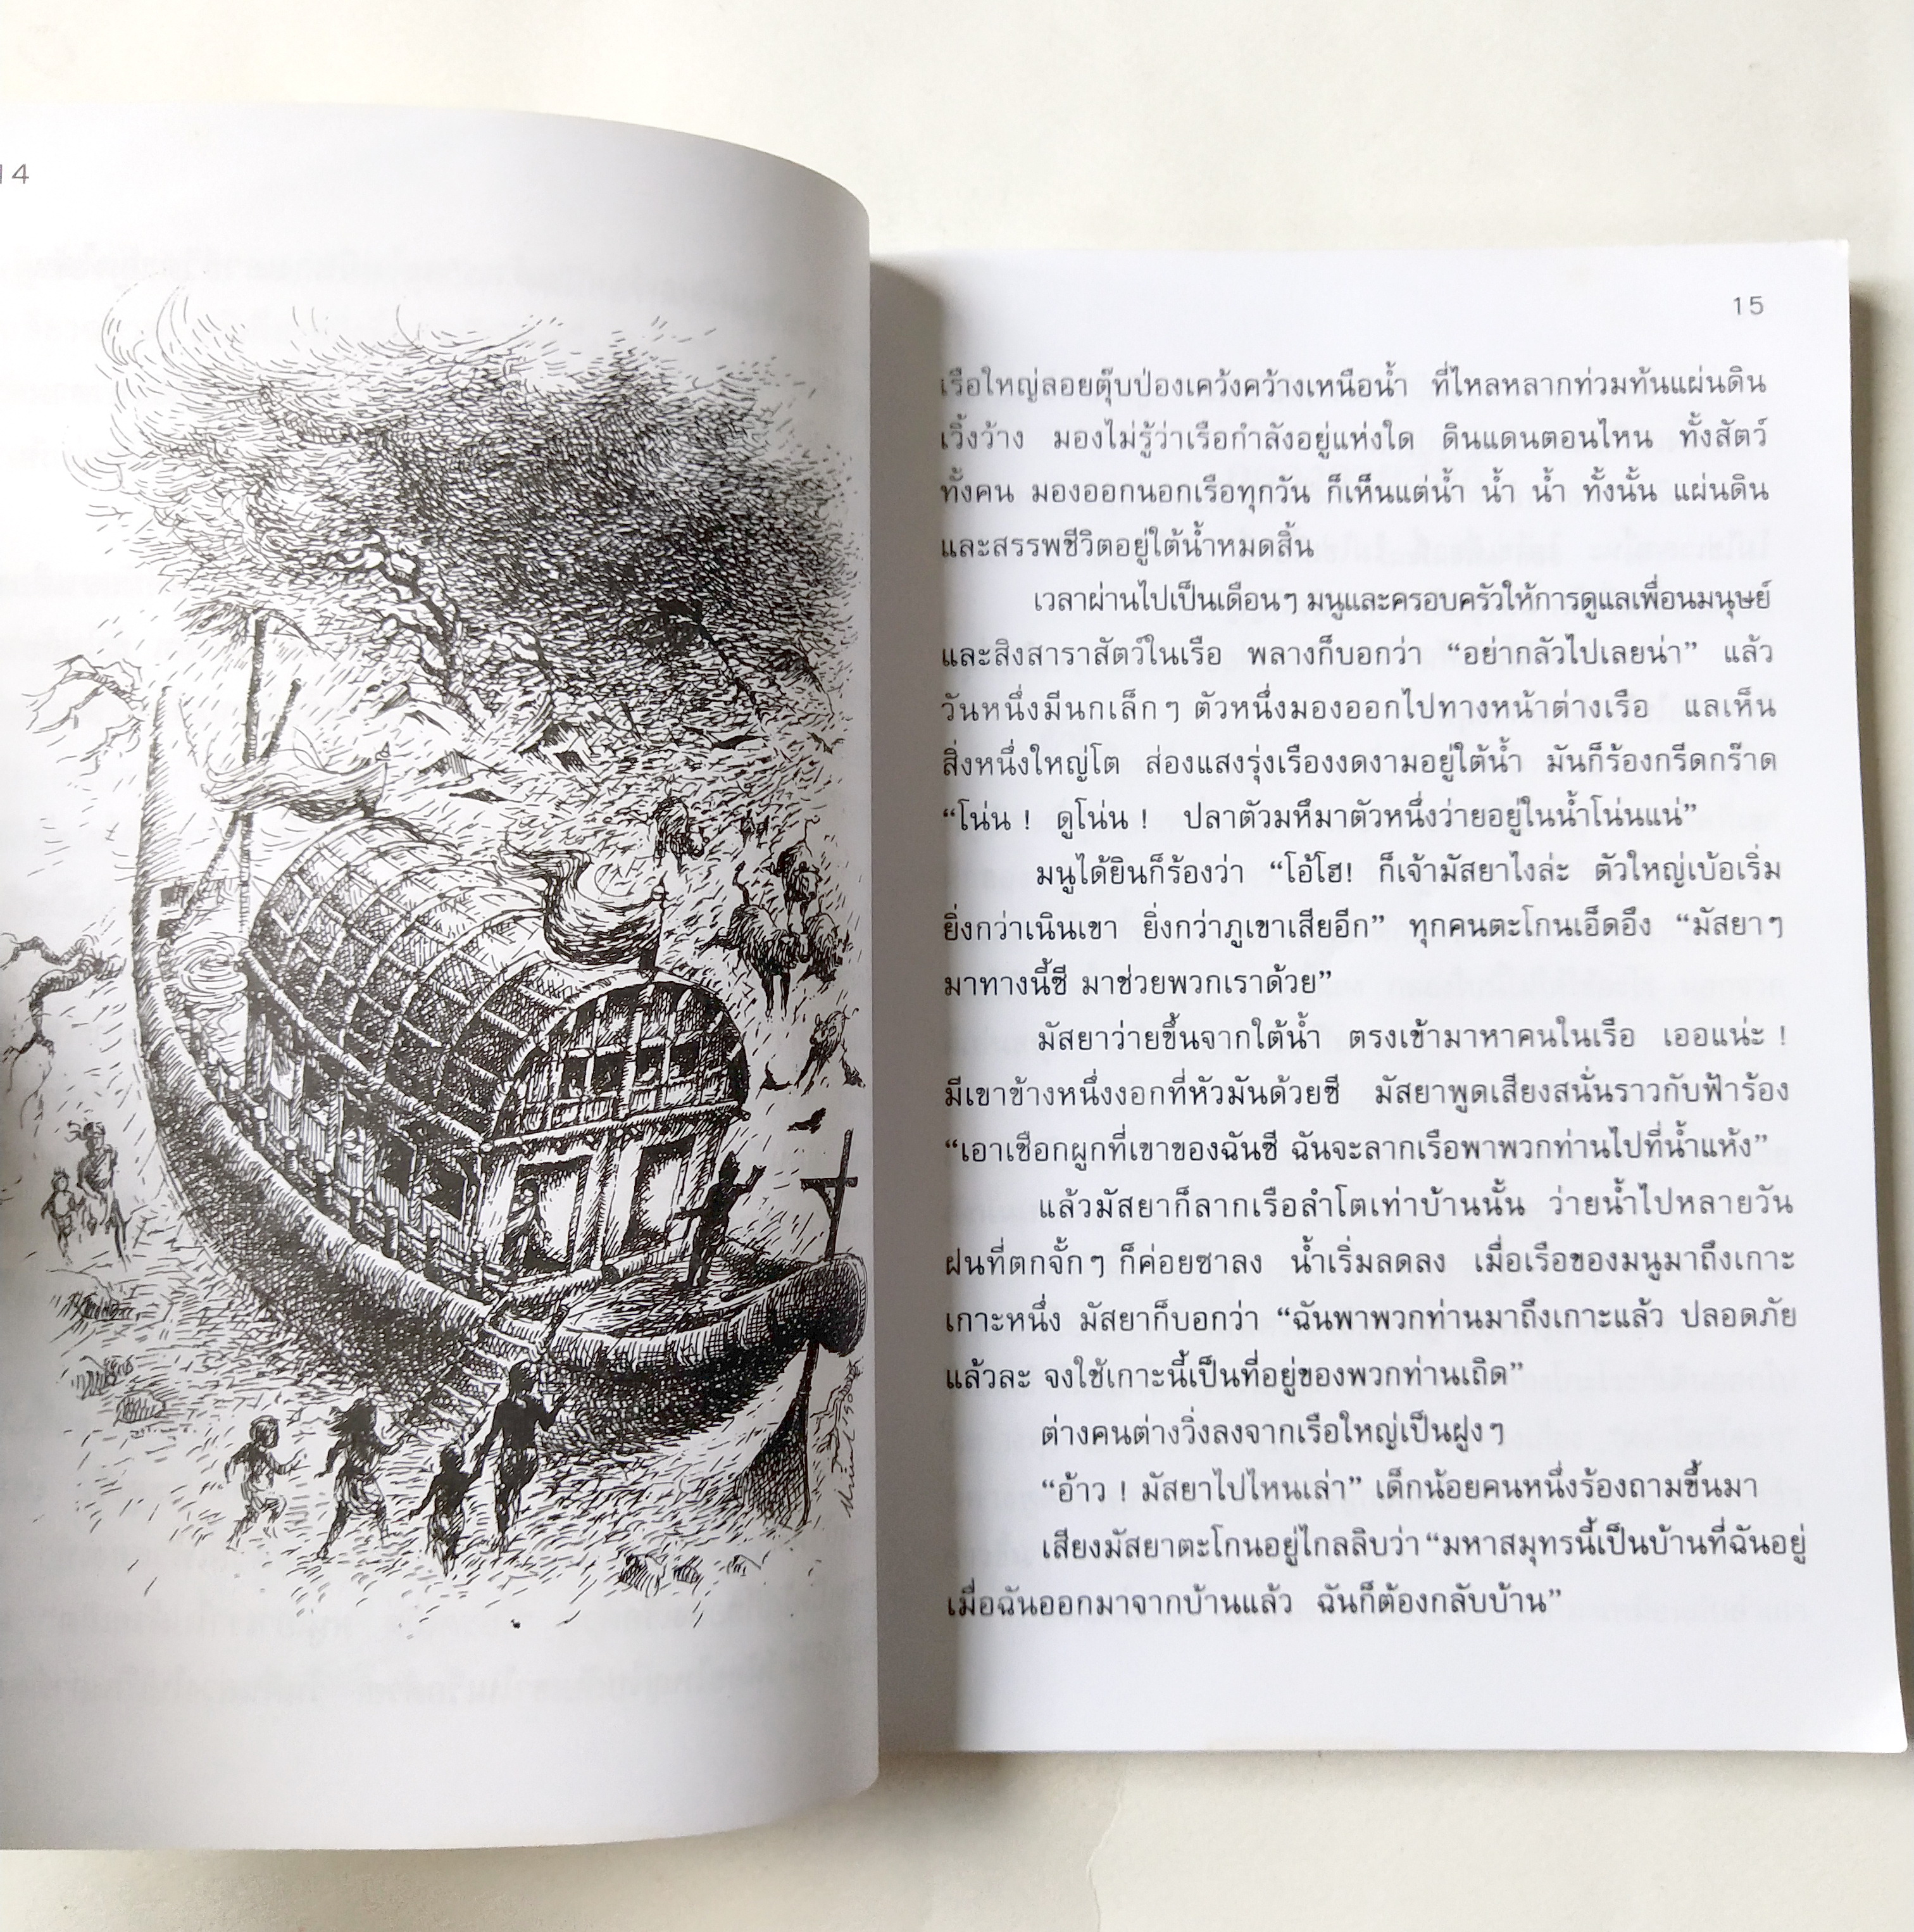 14
15
เรือใหญ่ลอยตุ๊บป่องเคว้งคว้างเหนือน้ำ ที่ไหลหลากท่วมท้นแผ่นดิน
เวิ้งว้าง มองไม่รู้ว่าเรือกำลังอยู่แห่งใด ดินแดนตอนไหน ทั้งสัตว์
ทั้งคน มองออกนอกเรือทุกวัน ก็เห็นแต่น้ำ น้ำ น้ำ ทั้งนั้น แผ่นดิน
และสรรพชีวิตอยู่ใต้น้ำหมดสิ้น
เวลาผ่านไปเป็นเดือนๆ มนูและครอบครัวให้การดูแลเพื่อนมนุษย์
และสิงสาราสัตว์ในเรือ พลางก็บอกว่า “อย่ากลัวไปเลยน่า” แล้ว
วันหนึ่งมีนกเล็กๆ ตัวหนึ่งมองออกไปทางหน้าต่างเรือ แลเห็น
สิ่งหนึ่งใหญ่โต ส่องแสงรุ่งเรืองงดงามอยู่ใต้น้ำ มันก็ร้องกรีดกร๊าด
“โน่น ! ดูโน่น ! ปลาตัวมหึมาตัวหนึ่งว่ายอยู่ในน้ำโน่นแน่”
มนูได้ยินก็ร้องว่า “โอ้โฮ! ก็เจ้ามัสยาไงล่ะ ตัวใหญ่เบ้อเริ่ม
ยิ่งกว่าเนินเขา ยิ่งกว่าภูเขาเสียอีก” ทุกคนตะโกนเอ็ดอึง “มัสยาๆ
มาทางนี้ซี มาช่วยพวกเราด้วย”
มัสยาว่ายขึ้นจากใต้น้ำ ตรงเข้ามาหาคนในเรือ เออแน่ะ !
มีเขาข้างหนึ่งงอกที่หัวมันด้วยซี มัสยาพูดเสียงสนั่นราวกับฟ้าร้อง
“เอาเชือกผูกที่เขาของฉันซี ฉันจะลากเรือพาพวกท่านไปที่น้ำแห้ง”
แล้วมัสยาก็ลากเรือลำโตเท่าบ้านนั้น ว่ายน้ำไปหลายวัน
ฝนที่ตกจั้กๆ ก็ค่อยซาลง น้ำเริ่มลดลง เมื่อเรือของมนูมาถึงเกาะ
เกาะหนึ่ง มัสยาก็บอกว่า “ฉันพาพวกท่านมาถึงเกาะแล้ว ปลอดภัย
แล้วละ จงใช้เกาะนี้เป็นที่อยู่ของพวกท่านเถิด”
ต่างคนต่างวิ่งลงจากเรือใหญ่เป็นฝูงๆ
“อ้าว ! มัสยาไปไหนเล่า” เด็กน้อยคนหนึ่งร้องถามขึ้นมา
เสียงมัสยาตะโกนอยู่ไกลลิบว่า “มหาสมุทรนี้เป็นบ้านที่ฉันอยู่
เมื่อฉันออกมาจากบ้านแล้ว ฉันก็ต้องกลับบ้าน”